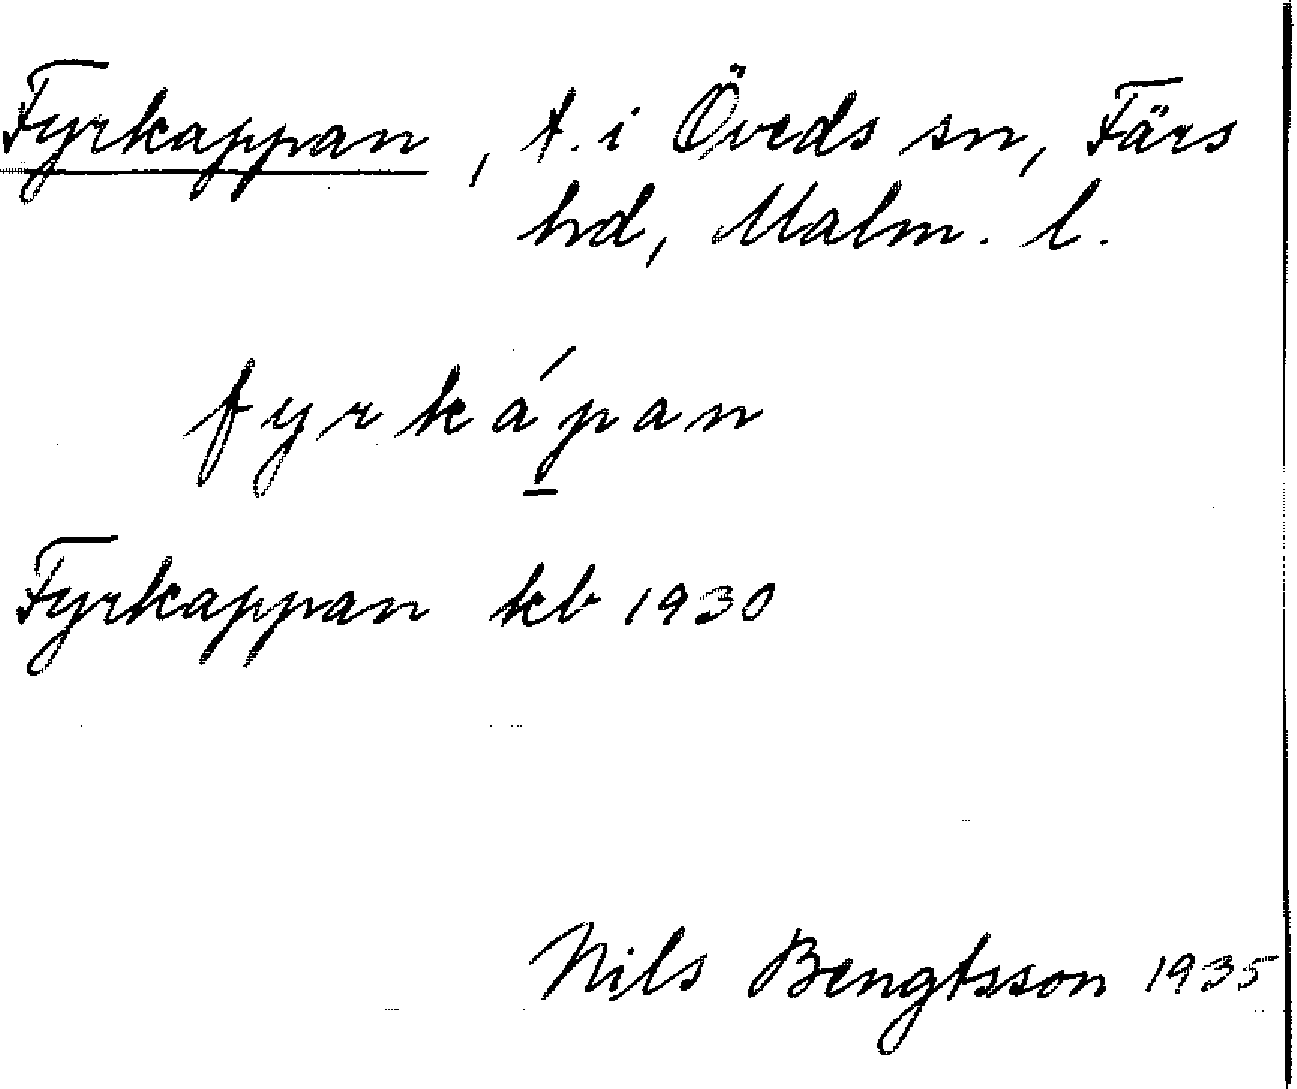 Fyrkappan, t. i Öveds sn, Färs
hd, Malm. l.
fyrkáp̱an
Fyrkappan kb 1930
Nils Bengtsson 1935